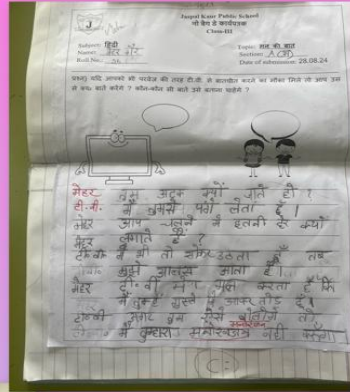 Jaspal Kaur Public School
नो बैग डे कार्यपत्रक
Class-III
Subject: हिंदी
Topic: मन की बात
Name: मेहर कौर
Section: A
Roll No.: 36
Date of submission: 28.08.24
प्रश्न) यदि आपको भी परवेज़ की तरह टी.वी. से बातचीत करने का मौका मिले तो आप उस
से क्या बातें करेंगे ? कौन-कौन सी बातें उसे बताना चाहेंगे ?
मेहर तुम अटक क्यों जाते हो ?
टी.वी. मैं तुमसे पंगे लेता हूँ ।
मेहर आप चलने में इतनी देर क्यों
मेहर लगाते हैं ?
टी.वी. मैं भी तो सोकर उठता हूँ तब
मुझे आलस आता है ।
मेहर टी.वी. मन करता है कि
मैं तुम्हें गुस्से में आकर तोड़ दूँ ।
टी.वी. अगर तुम ऐसे बोलोगे तो
मैं तुम्हारा मनोरंजन नहीं करूँगा